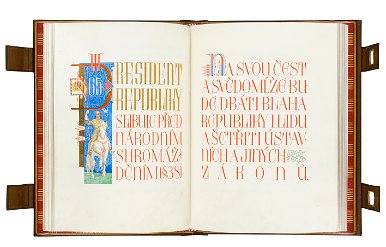 § 65
PRESIDENT
REPUBLIKY
SLIBUJE PŘED
NÁRODNÍM
SHROMÁŽ
DĚNÍM (§38)
NA SVOU ČEST
A SVĚDOMÍ ŽE BU
DE DBÁTI BLAHA
REPUBLIKY I LIDU
A ŠETŘITI ÚSTAV
NÍCH A JINÝCH
ZÁKONŮ